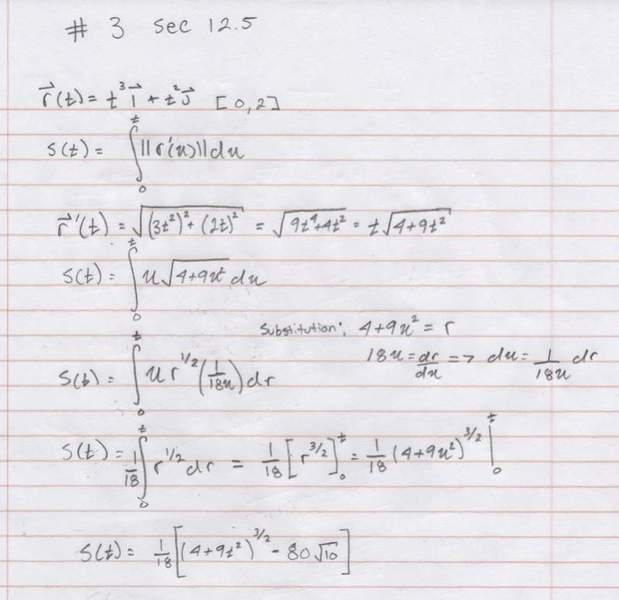 # 3 sec 12.5
r⃗(t) = t³ i⃗ + t² j⃗ [0,2]
s(t) = ∫₀ᵗ ||r'(u)|| du
r⃗'(t) = √((3t²)² + (2t)²) = √(9t⁴+4t²) = t√(4+9t²)
s(t) = ∫₀ᵗ u√(4+9u²) du
Substitution: 4+9u² = r
18u = dr/du => du = 1/(18u) dr
s(t) = ∫₀ᵗ u r^(1/2) (1/(18u)) dr
s(t) = 1/18 ∫₀ᵗ r^(1/2) dr = 1/18 [r^(3/2)]₀ᵗ = 1/18 (4+9u²)^(3/2) |₀ᵗ
s(t) = 1/18 [(4+9t²)^(3/2) - 80√10]